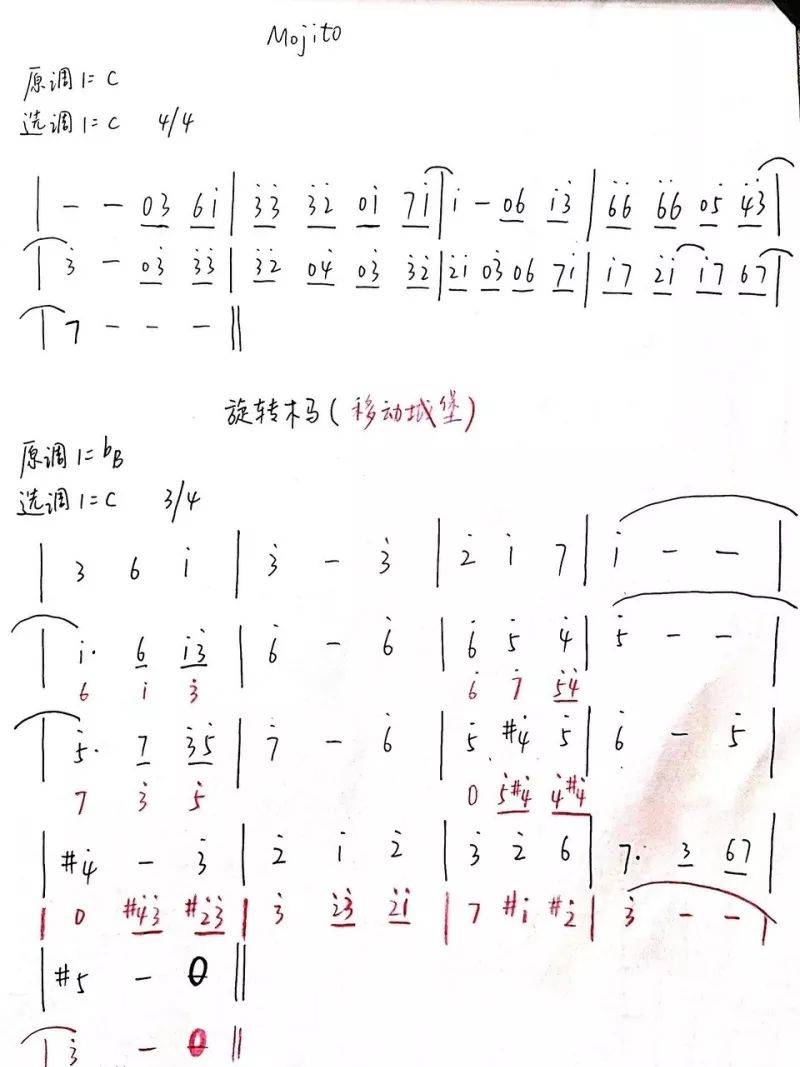 Mojito
原调1=C
选调1=C 4/4
| - - 03 6i̇ | 3̇3̇ 3̇2̇ 0i̇ 7i̇ | i̇ - 06 i̇3̇ | 6̇6̇ 6̇6̇ 05̇ 4̇3̇ |
| 3̇ - 03̇ 3̇3̇ | 3̇2̇ 04̇ 03̇ 3̇2̇ | 2̇i̇ 03̇ 06 7i̇ | i̇7 2̇i̇ i̇7 67 |
| 7 - - - ‖
旋转木马(移动城堡)
原调1=bB
选调1=C 3/4
| 3 6 i̇ | 3̇ - 3̇ | 2̇ i̇ 7 | i̇ - - |
| i̇· 6 i̇3̇ | 6̇ - 6̇ | 6̇ 5̇ 4̇ | 5̇ - - |
6 i 3̇ 6̇ 7̇ 5̇4̇
| 5̇· 7 3̇5̇ | 7̇ - 6̇ | 5̇ #4̇ 5̇ | 6̇ - 5̇ |
7 3̇ 5̇ 0 5̇#4̇ 4̇#4̇
| #4̇ - 3̇ | 2̇ i̇ 2̇ | 3̇ 2̇ 6 | 7· 3 67 |
| 0 #4̇3̇ #2̇3̇ | 3̇ 2̇3̇ 2̇i̇ | 7 #i̇ #2̇ | 3̇ - - |
| #5 - 0 ‖
| 3̇ - 0 ‖